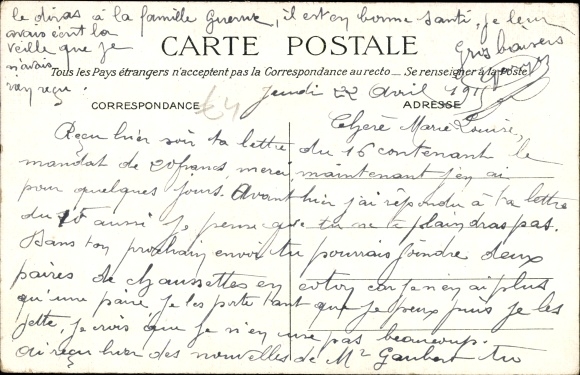 le diras à la famille Guerric, il est en bonne santé, je leur
avais écrit la
veille que je
n'avais
rien reçu.
Gros baisers
CARTE POSTALE
Tous les Pays étrangers n'acceptent pas la Correspondance au recto — Se renseigner à la poste
CORRESPONDANCE
ADRESSE
£4
Jeudi 22 Avril 1915
Chère Marie Louise,
Reçu hier soir ta lettre du 16 contenant le
mandat de 20 francs, merci, maintenant j'en ai
pour quelques jours. Avant hier j'ai répondu à ta lettre
du 15 aussi je pense que tu ne te plaindras pas.
Dans ton prochain envoi tu pourrais joindre deux
paires de chaussettes en coton car je n'en ai plus
qu'une paire je les porte tant que je peux puis je les
jette, je crois que je n'en use pas beaucoup.
ai reçu hier des nouvelles de Mr Gaubert tu